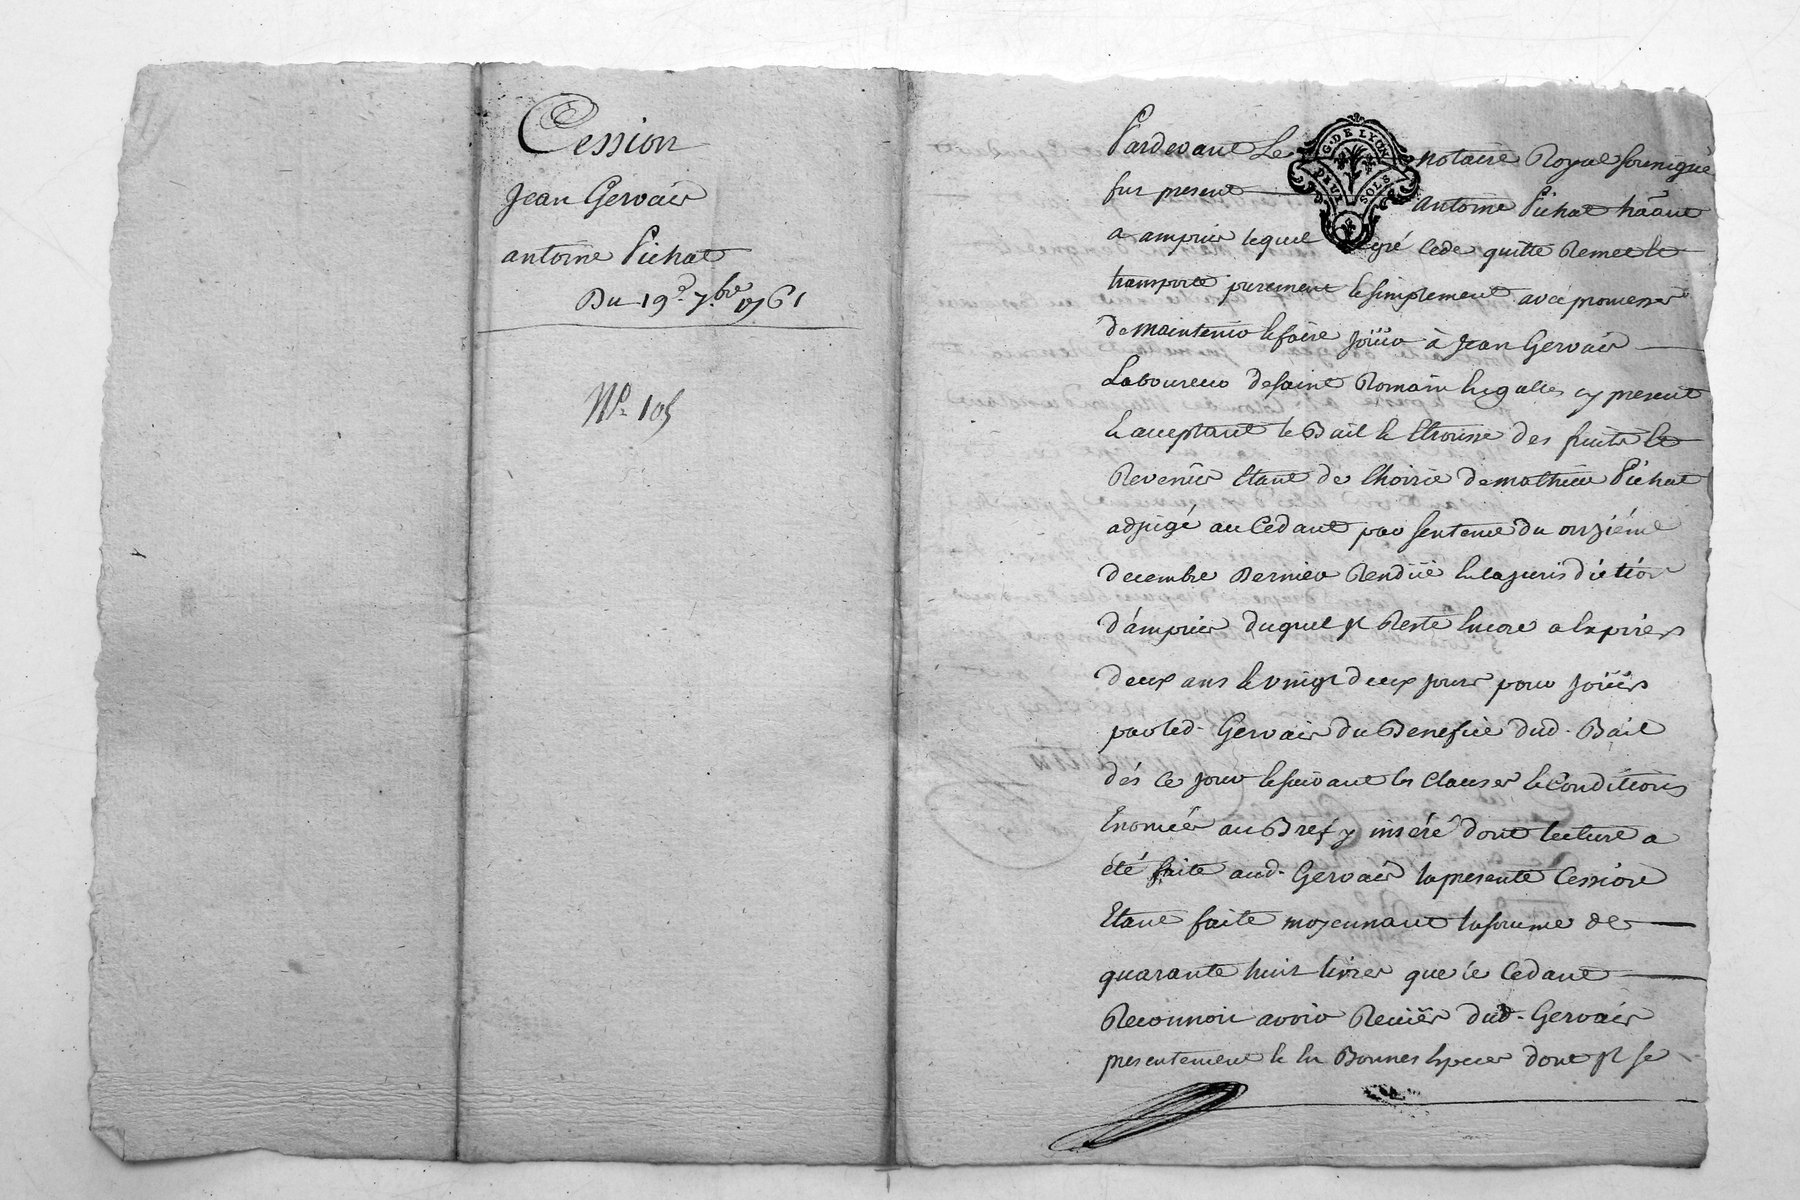 Cession
Jean Gervais
antoine Pichat
Du 19e. 7.bre 1761
No. 105
G. DE LYON
DEUX SOLS
Pardevant Le notaire Royal sousigné
fut present antoine Pichat
a ampuis lequel gré cede quitte Remet et
transporte purement et simplement avec promesse
de maintenir et faire joüir à Jean Gervais
Laboureur de saint Romain en galles cy present
et acceptant le Bail et des fruits et
Revenus etant de l'hoirie de mathieu Pichat
adjugé au Cedant par sentence du onziéme
decembre dernier Rendüe en la jurisdiction
d'ampuis duquel il Reste encore a expirer
deux ans et vingt deux jours pour joüir
par led. Gervais du Benefice dud. Bail
dés ce jour et suivant les clauses et Conditions
Enoncées au Bref y inséré dont lecture a
été faite aud. Gervais la presente Cession
Etant faite moyennant la somme de
quarante huit livres que le Cedant
Reconnoit avoir Reçües dud. Gervais
presentement et en Bonnes especes dont il se